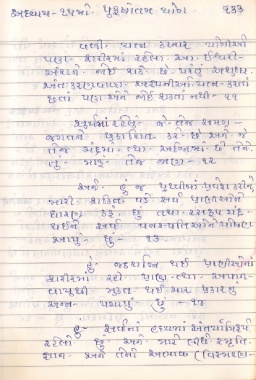 અધ્યાય-૧૫મો પુરુષોત્તમ યોગ ૧૩૩
વળી યત્ન કરનાર યોગીઓ
પણ શરીરમાં રહેલા આ ઈશ્વરી-
અંશને જોઈ શકે છે પરંતુ અશુદ્ધ
અંતઃકરણવાળા અજ્ઞાનીઓ યત્ન કરતાં
છતાં પણ એને જોઈ શકતાં નથી - ૧૧
સૂર્યમાં રહેલું જે તેજ સમગ્ર-
જગતને પ્રકાશિત કરે છે અને જે
તેજ ચંદ્રમાં તથા અગ્નિમાં છે તેને
તું મારું તેજ જાણ - ૧૨
અને હું જ પૃથ્વીમાં પ્રવેશ કરીને
મારી શક્તિ વડે સર્વ પ્રાણીઓને
ધારણ કરું છું તથા રસરૂપ ચંદ્ર
થઈને સર્વ વનસ્પતિઓને પોષણ
આપું છું - ૧૩
હું જઠરાગ્નિ થઈ પ્રાણીઓનાં
શરીરમાં રહી પ્રાણ તથા અપાન-
વાયુથી યુક્ત થઈ ચાર પ્રકારનું
અન્ન પચાવું છું - ૧૪
હું સર્વનાં હૃદયમાં અંતર્યામીરૂપે
રહેલો છું અને મારા થી સ્મૃતિ
જ્ઞાન અને તેનો અભાવ (વિસ્મરણ-